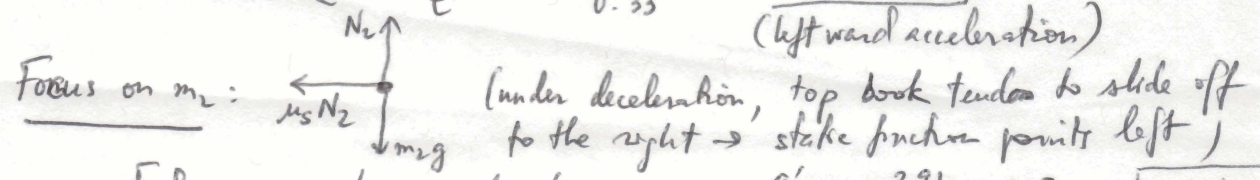 0.33
(leftward acceleration)
N₂
Focus on m₂ :
μsN₂
m₂g
(under deceleration, top book tends to slide off
to the right → static friction points left)